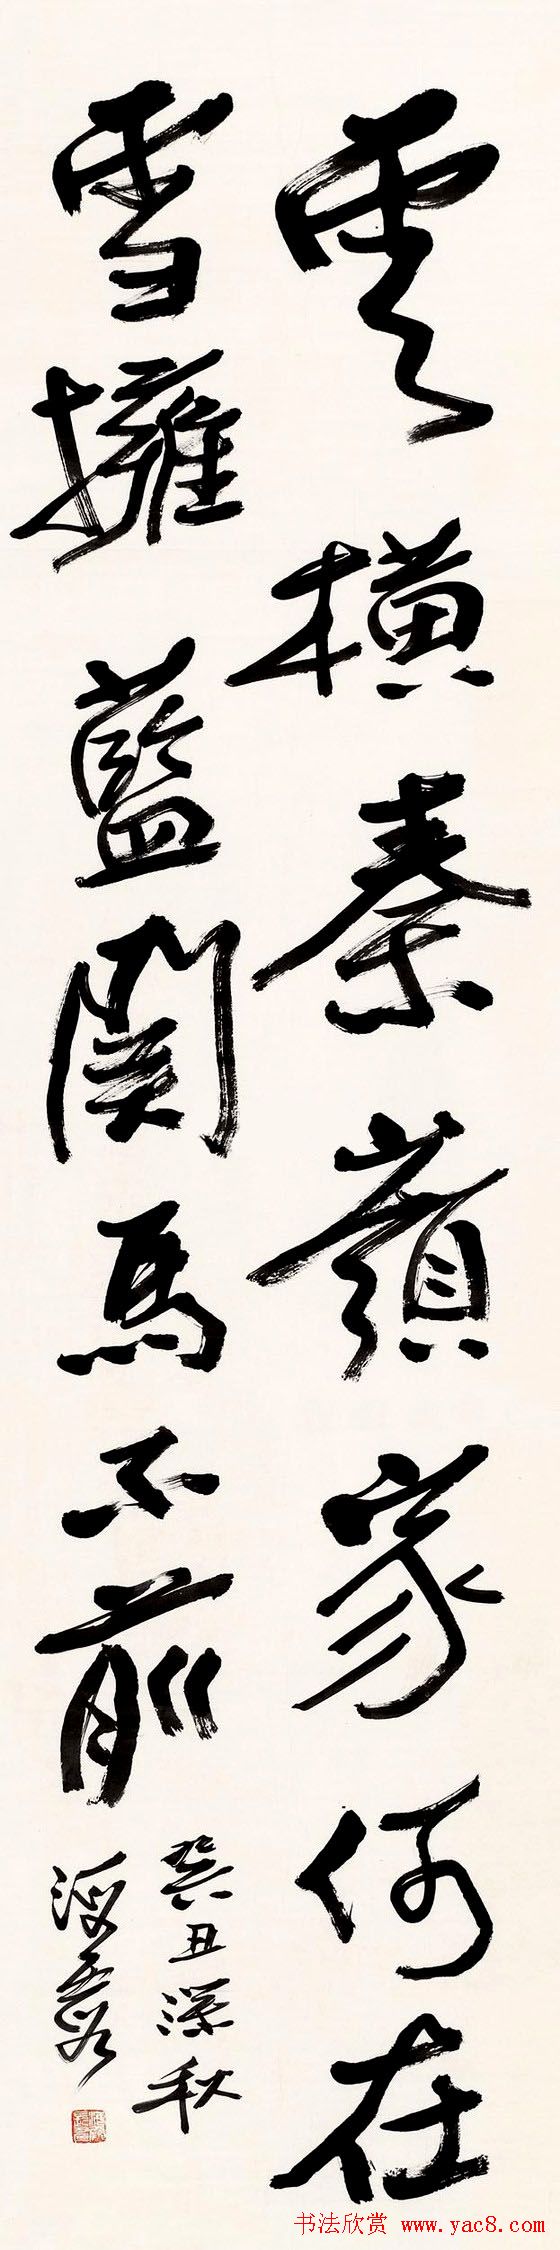 雲橫秦嶺家何在
雪擁藍關馬不前
癸丑深秋
书法欣赏 www.yac8.com